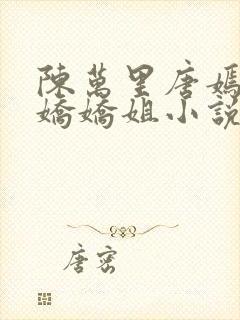 陳萬里唐嫣
嬌嬌姐小說
唐密